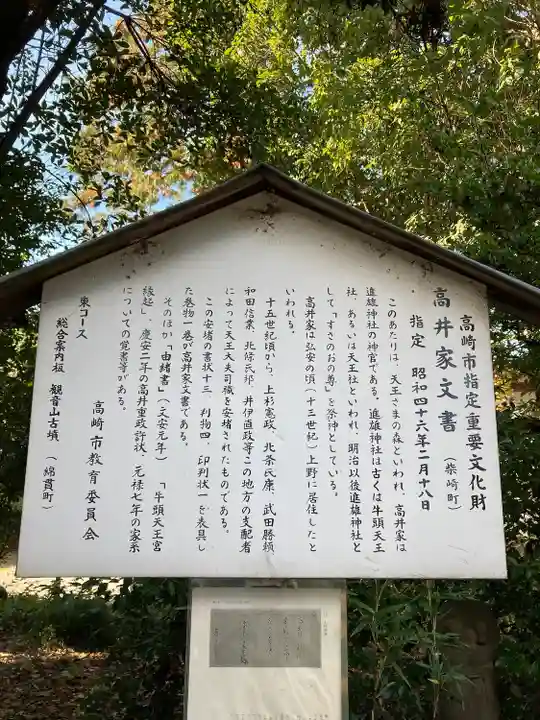 高崎市指定重要文化財
高井家文書 (柴崎町)
指定 昭和四十六年二月十八日
このあたりは、天王さまの森といわれ、高井家は
進雄神社の神官である。進雄神社は古くは牛頭天王
社、あるいは天王社といわれ、明治以後進雄神社と
して「すさのおの尊」を祭神としている。
高井家は弘安の頃(十三世紀)上野に居住したと
いわれる。
十五世紀頃から、上杉憲政、北条氏康、武田勝頼
和田信業、北条氏邦、井伊直政等この地方の支配者
によって天王大夫司職を安堵されたものである。
この安堵の書状十三、判物四、印判状一を表具し
た巻物一巻が高井家文書である。
そのほか「由緒書」(文安元年)「牛頭天王宮
縁起」、慶安二年の高井重政許状、元禄七年の家系
についての覚書等がある。
高崎市教育委員会
東コース
総合案内板 観音山古墳 (綿貫町)